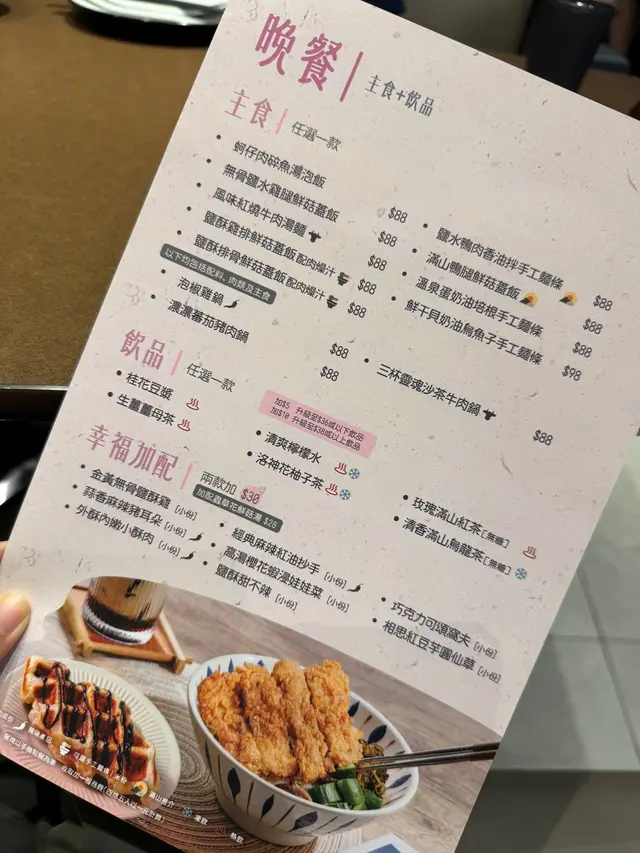 晚餐 主食+飲品
主食 任選一款
蚵仔肉碎魚湯泡飯 $88
無骨鹽水雞腿鮮菇蓋飯 $88
風味紅燒牛肉湯麵 $88
鹽酥雞排鮮菇蓋飯 配肉燥汁 $88
鹽酥排骨鮮菇蓋飯 配肉燥汁 $88
鹽水鴨肉香油拌手工麵條 $88
滿山鴨腿鮮菇蓋飯 $88
溫泉蛋奶油培根手工麵條 $88
鮮干貝奶油烏魚子手工麵條 $98
以下均包括配料, 肉類及主食
泡椒雞鍋 $88
濃濃蕃茄豬肉鍋 $88
三杯靈魂沙茶牛肉鍋 $88
飲品 任選一款
加$5 升級至$36或以下飲品
加$10 升級至$38或以上飲品
桂花豆漿
生薑薑母茶
清爽檸檬水
洛神花柚子茶
玫瑰滿山紅茶[無糖]
清香滿山烏龍茶[無糖]
幸福加配 兩款加 $30
加配蟲草花鮮菇湯 $28
金黃無骨鹽酥雞 [小份]
蒜香麻辣豬耳朵 [小份]
外酥內嫩小酥肉 [小份]
經典麻辣紅油抄手 [小份]
高湯櫻花蝦浸娃娃菜 [小份]
鹽酥甜不辣 [小份]
巧克力可頌窩夫 [小份]
相思紅豆芋圓仙草 [小份]
可選手工麵條/米粉
滿山推介
凍飲
熱飲